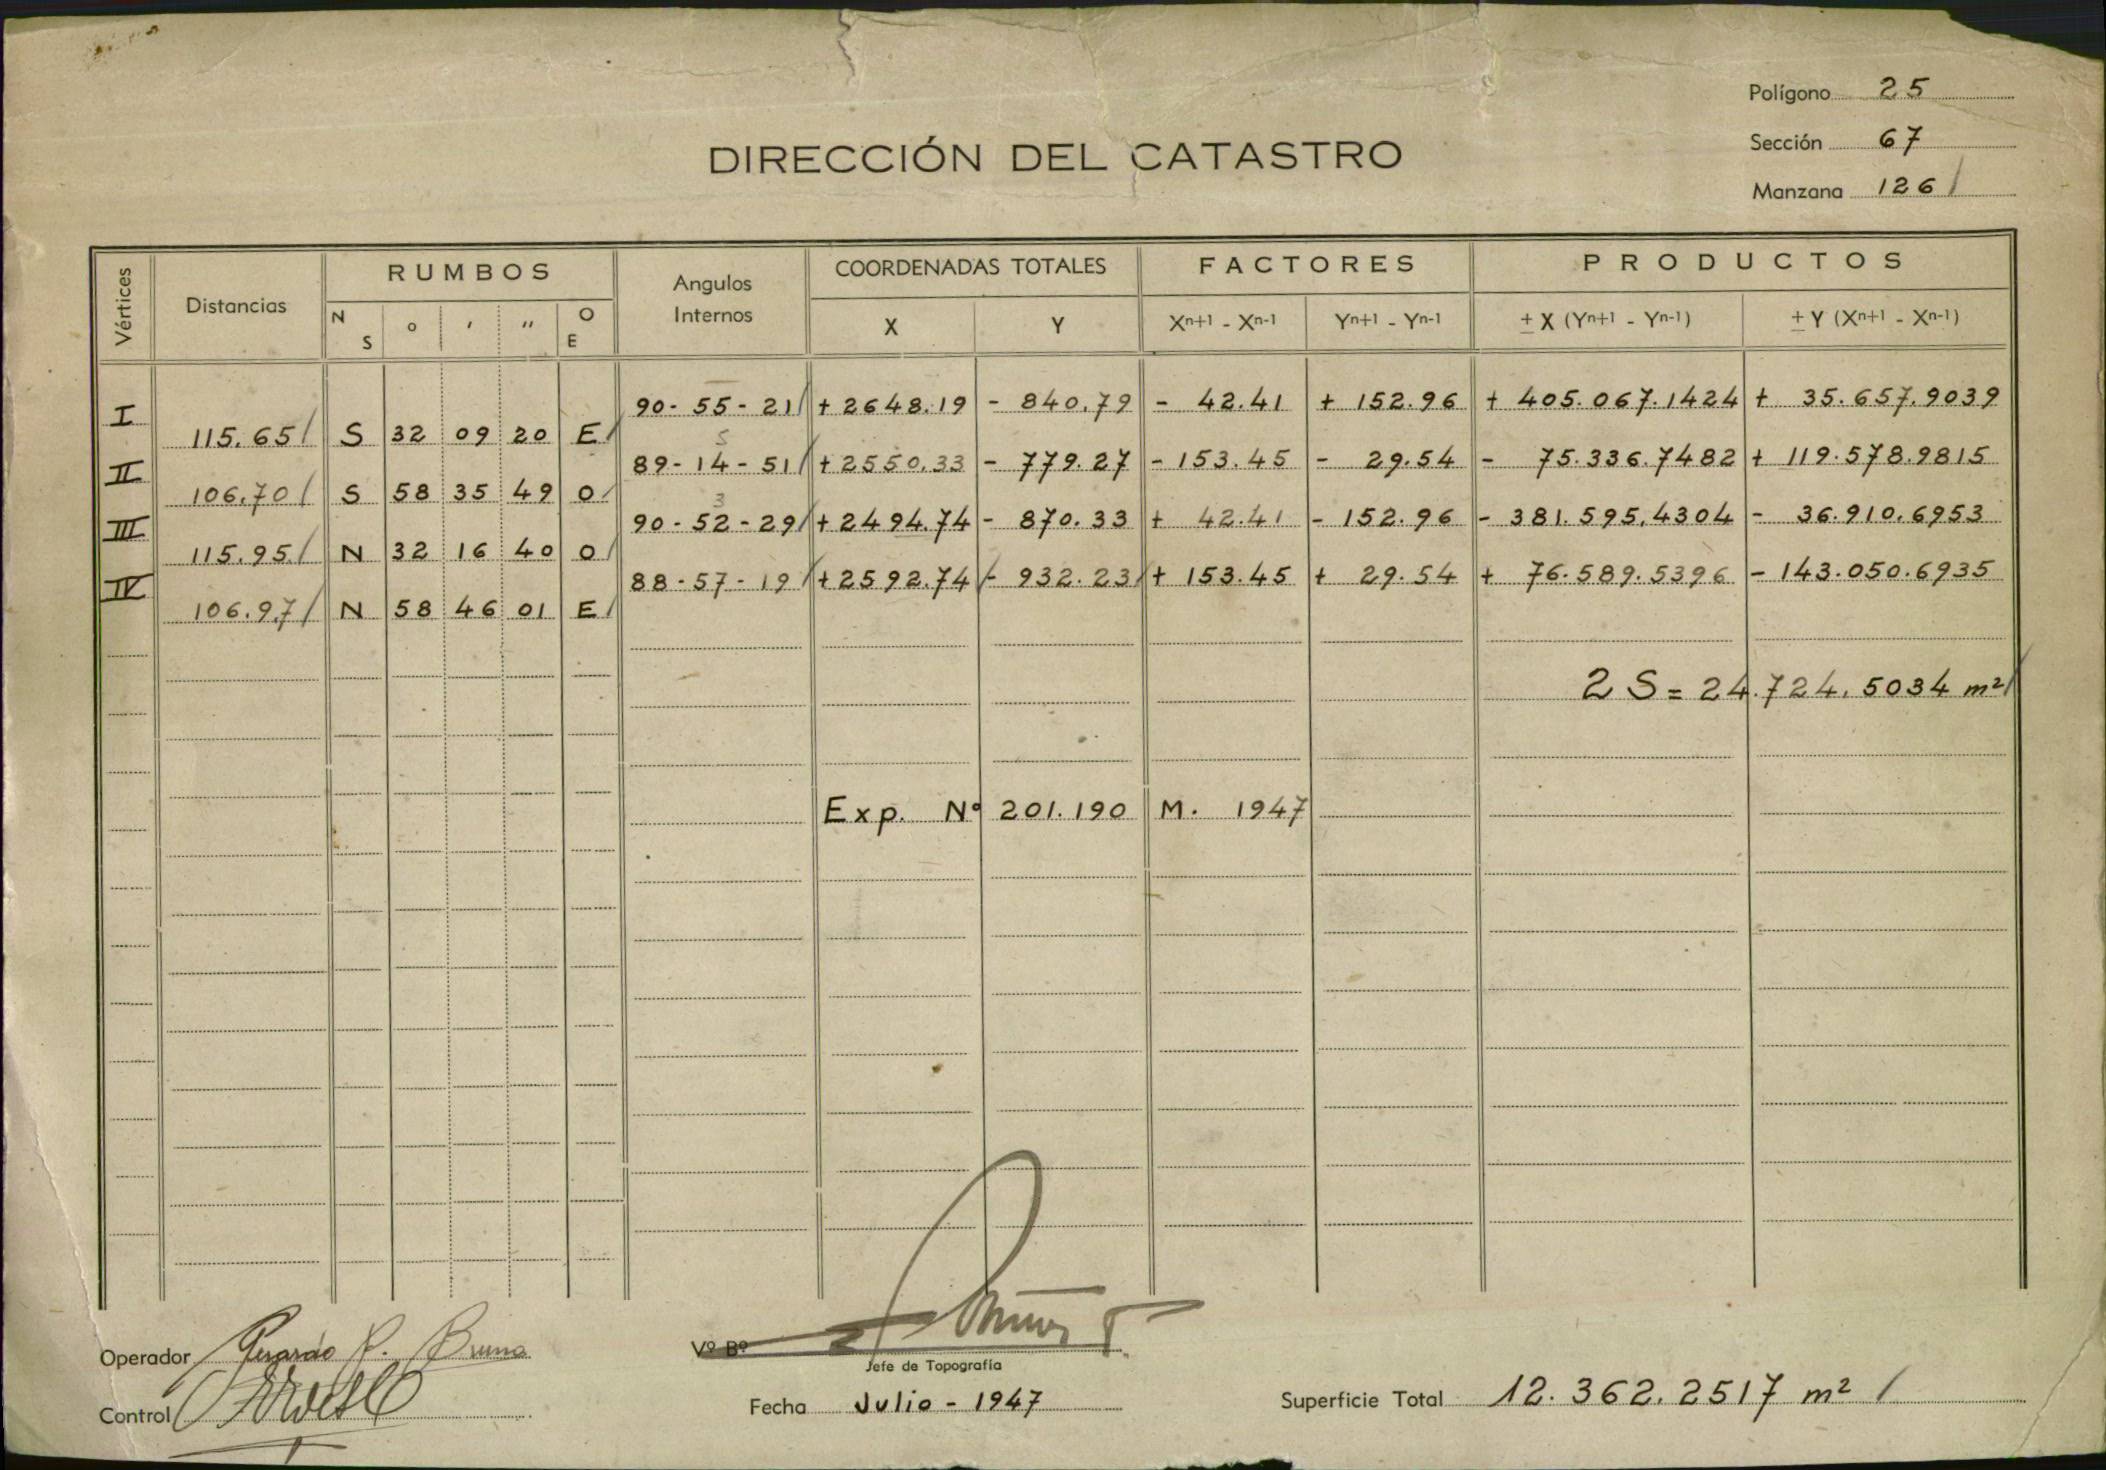 Polígono 25
DIRECCIÓN DEL CATASTRO
Sección 67
Manzana 126
Vértices Distancias RUMBOS Angulos Internos COORDENADAS TOTALES FACTORES PRODUCTOS
N S ° ' '' O E X Y Xn+1 - Xn-1 Yn+1 - Yn-1 ± X (Yn+1 - Yn-1) ± Y (Xn+1 - Xn-1)
I 90-55-21 +2648.19 - 840.79 - 42.41 + 152.96 + 405.067.1424 + 35.657.9039
115.65 S 32 09 20 E
5
II 89-14-51 +2550.33 - 779.27 - 153.45 - 29.54 - 75.336.7482 + 119.578.9815
106.70 S 58 35 49 O
3
III 90-52-29 +2494.74 - 870.33 + 42.41 - 152.96 - 381.595.4304 - 36.910.6953
115.95 N 32 16 40 O
IV 88-57-19 +2592.74 - 932.23 + 153.45 + 29.54 + 76.589.5396 - 143.050.6935
106.97 N 58 46 01 E
2 S = 24.724.5034 m²
Exp. Nº 201.190 M. 1947
Operador Gerardo P. Bruno
Vº Bº
Jefe de Topografía
Control
Fecha Julio - 1947
Superficie Total 12.362.2517 m²